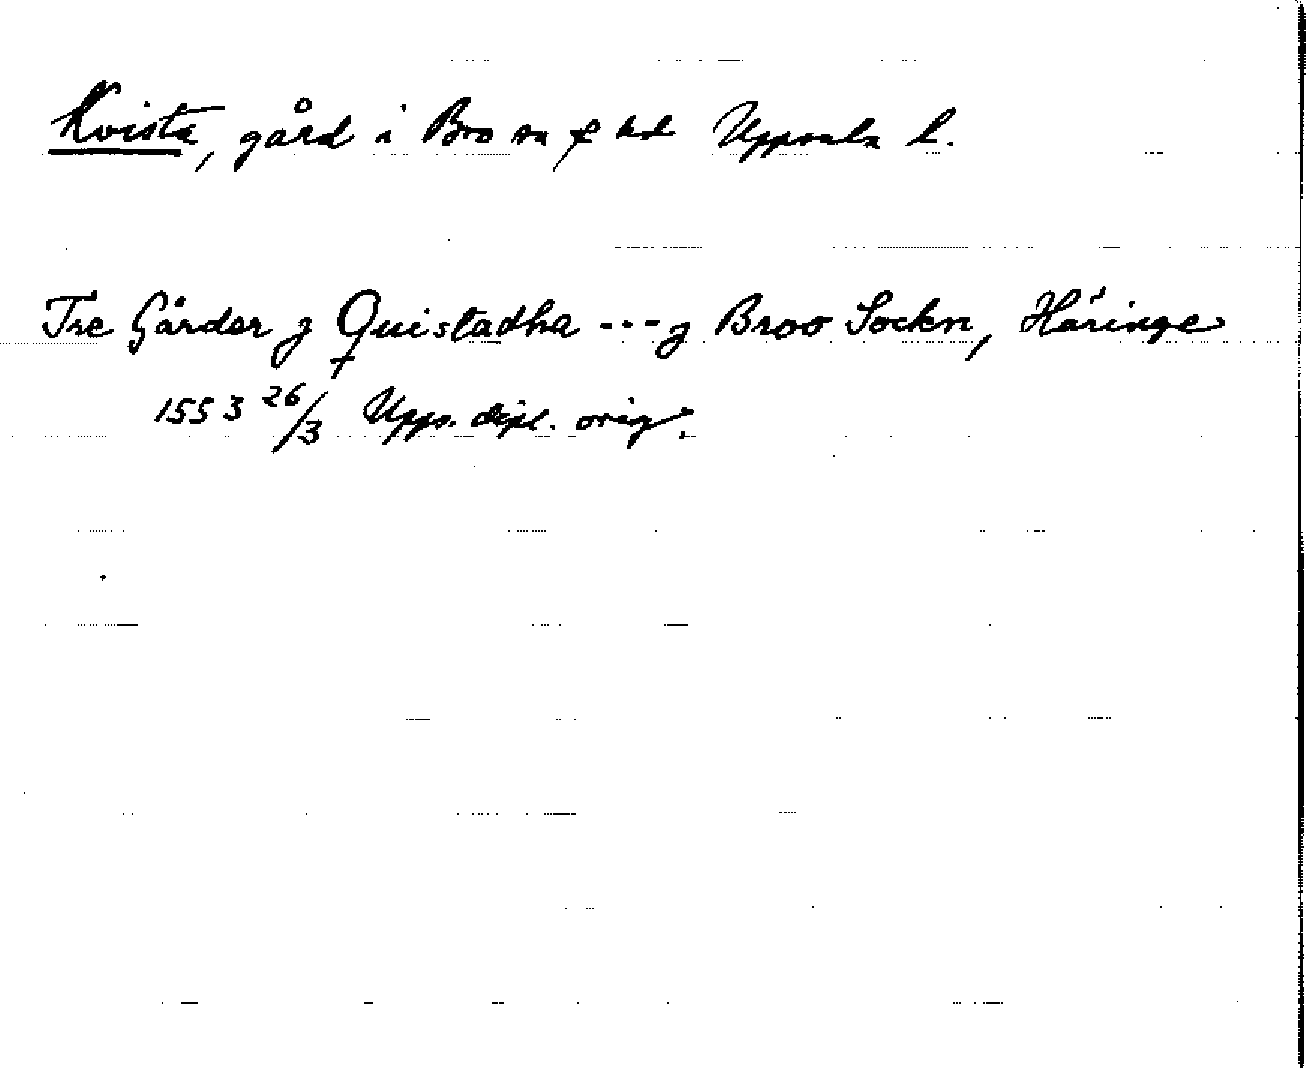 Kvista, gård i Bro sn & hd Uppsala l.
Tre Gårder j Quistadha --- j Broo Sockn, Häringe
1553 26/3 Upps. dipl. orig.